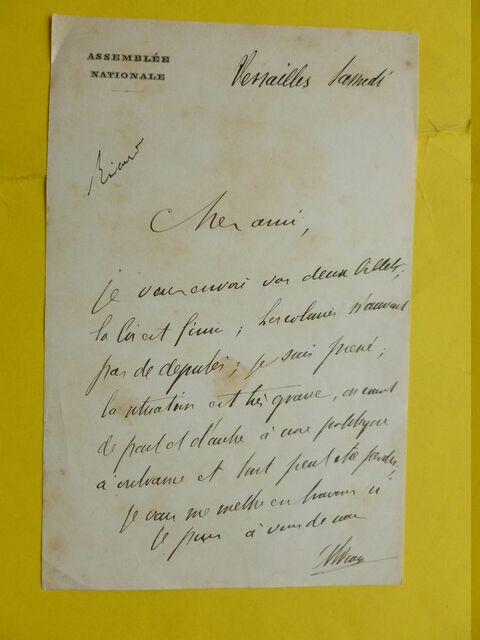 ASSEMBLÉE
NATIONALE
Versailles Samedi
Ricard
Cher ami,
je vous envoi vos deux billets,
la loi est finie ; les colonies n'auront
pas de députés ; je suis pressé ;
la situation est très grave, on court
de part et d'autre à une politique
à outrance et tout peut etre perdu ;
je vais me mettre en travers si
je puis à vous de